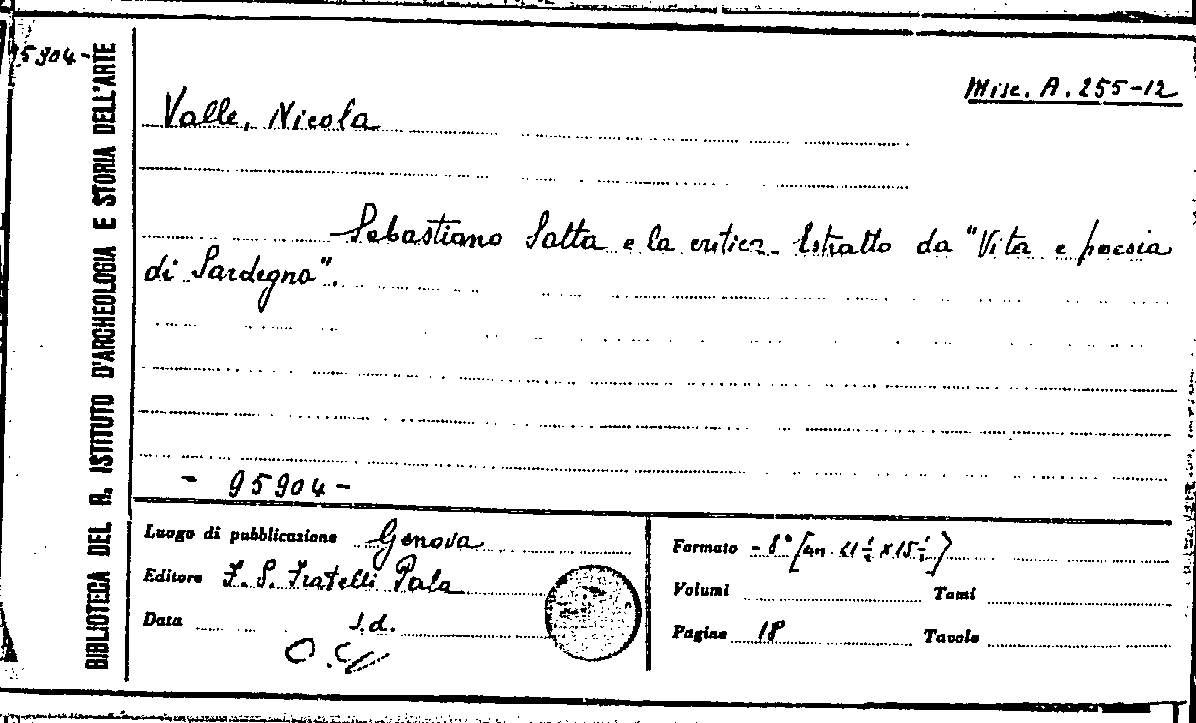 95904-
BIBLIOTECA DEL R. ISTITUTO D'ARCHEOLOGIA E STORIA DELL'ARTE
Misc. A. 255-12
Valle, Nicola
Sebastiano Satta e la critica. Estratto da "Vita e poesia
di Sardegna".
- 95904 -
Luogo di pubblicazione Genova
Editore F. S. Fratelli Pala
Data s.d.
Formato - 8° (cm. 21 ½ x 15 ½)
Volumi Tomi
Pagine 18 Tavole